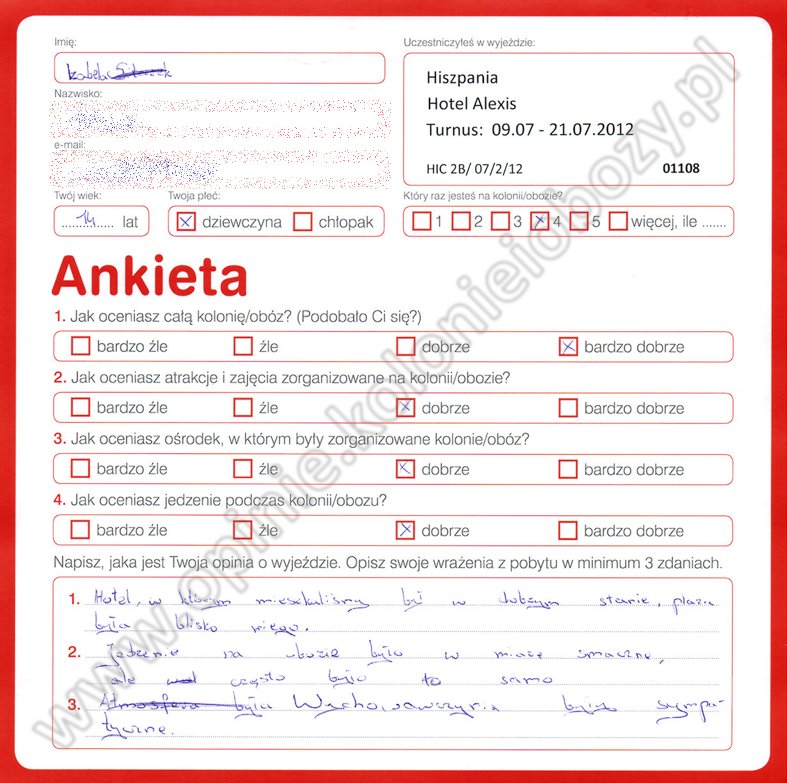 Imię:
Uczestniczyłeś w wyjeździe:
Izabela
Hiszpania
Hotel Alexis
Turnus: 09.07 - 21.07.2012
HIC 2B/ 07/2/12 01108
Nazwisko:
e-mail:
Twój wiek: Twoja płeć: Który raz jesteś na kolonii/obozie?
14 lat dziewczyna chłopak 1 2 3 4 5 więcej, ile .......
Ankieta
1. Jak oceniasz całą kolonię/obóz? (Podobało Ci się?)
bardzo źle źle dobrze bardzo dobrze
2. Jak oceniasz atrakcje i zajęcia zorganizowane na kolonii/obozie?
bardzo źle źle dobrze bardzo dobrze
3. Jak oceniasz ośrodek, w którym były zorganizowane kolonie/obóz?
bardzo źle źle dobrze bardzo dobrze
4. Jak oceniasz jedzenie podczas kolonii/obozu?
bardzo źle źle dobrze bardzo dobrze
Napisz, jaka jest Twoja opinia o wyjeździe. Opisz swoje wrażenia z pobytu w minimum 3 zdaniach.
1. Hotel, w którym mieszkaliśmy był w dobrym stanie, plaża
była blisko niego.
2. Jedzenie na obozie było w miarę smaczne,
ale często było to samo
3. Atmosfera była Wychowawczynie były sympa-
tyczne.
www.opinie.kolonieiobozy.pl